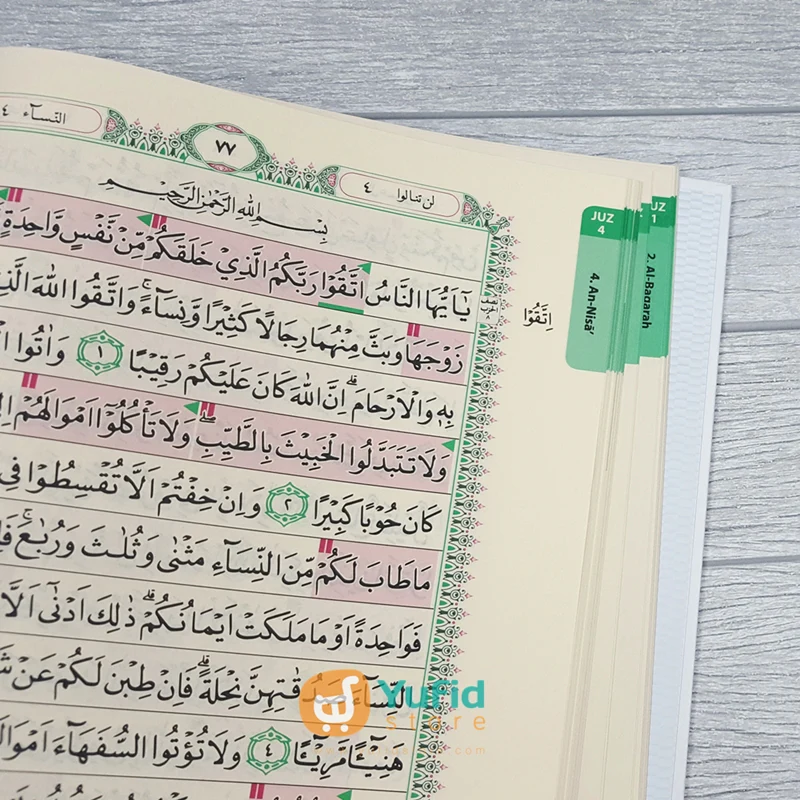 النساۤء ٤
٧٧
لن تنالوا ٤
بِسْمِ اللّٰهِ الرَّحْمٰنِ الرَّحِيْمِ
يٰٓاَيُّهَا النَّاسُ اتَّقُوْا رَبَّكُمُ الَّذِيْ خَلَقَكُمْ مِّنْ نَّفْسٍ وَّاحِدَةٍ
زَوْجَهَا وَبَثَّ مِنْهُمَا رِجَالًا كَثِيْرًا وَّنِسَاۤءً ۚ وَاتَّقُوا اللّٰهَ
بِهٖ وَالْاَرْحَامَ ۗ اِنَّ اللّٰهَ كَانَ عَلَيْكُمْ رَقِيْبًا ١ وَاٰتُوا
وَلَا تَتَبَدَّلُوا الْخَبِيْثَ بِالطَّيِّبِ ۖ وَلَا تَأْكُلُوْٓا اَمْوَالَهُمْ
كَانَ حُوْبًا كَبِيْرًا ٢ وَاِنْ خِفْتُمْ اَلَّا تُقْسِطُوْا فِى
مَا طَابَ لَكُمْ مِّنَ النِّسَاۤءِ مَثْنٰى وَثُلٰثَ وَرُبٰعَ ۚ
فَوَاحِدَةً اَوْ مَا مَلَكَتْ اَيْمَانُكُمْ ۗ ذٰلِكَ اَدْنٰٓى اَلَّا
النِّسَاۤءَ صَدُقٰتِهِنَّ نِحْلَةً ۗ فَاِنْ طِبْنَ لَكُمْ عَنْ
هَنِيْۤـًٔا مَّرِيْۤـًٔا ٤ وَلَا تُؤْتُوا السُّفَهَاۤءَ
اِتَّقُوْا
JUZ
4
4. An-Nisā'
UZ
1
2. Al-Baqarah
Yufid
store